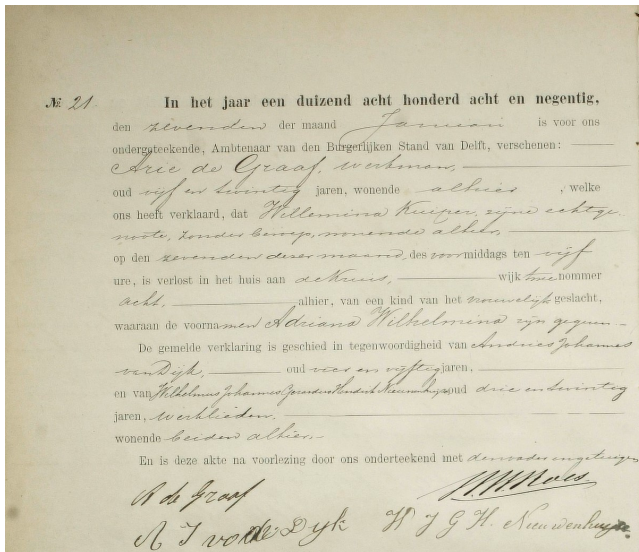 № 21 In het jaar een duizend acht honderd acht en negentig,
den zevenden der maand Januari is voor ons
ondergeteekende, Ambtenaar van den Burgerlijken Stand van Delft, verschenen:
Arie de Graaf, werkman,
oud vijf en twintig jaren, wonende alhier, welke
ons heeft verklaard, dat Willemina Kuiper, zijne echtge-
noote, zonder beroep, wonende alhier,
op den zevenden dezer maand, des voormiddags ten vijf
ure, is verlost in het huis aan de wijk twee nommer
acht, alhier, van een kind van het vrouwelijk geslacht,
waaraan de voornamen Adriana Wilhelmina zijn gegeven
De gemelde verklaring is geschied in tegenwoordigheid van Andries Johannes
van Dijk, oud vijftig jaren,
en van Wilhelmus Johannes Gerardus Hendrik Nieuwenhuijse, oud drie en twintig
jaren, werklieden,
wonende beiden alhier.
En is deze akte na voorlezing door ons onderteekend met den vader en getuigen
A de Graaf
A J van Dijk W J G H. Nieuwenhuijse